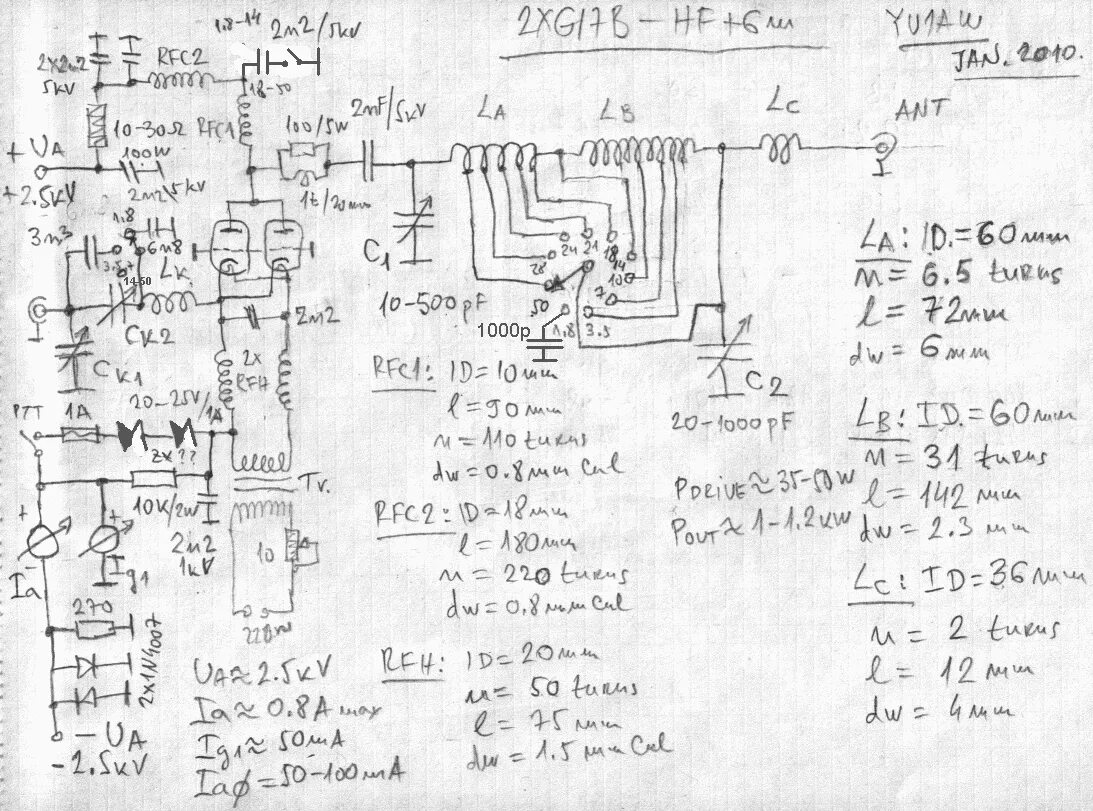 2XGI7B – HF + 6m
YU1AW
JAN. 2010.
1.8-14
2n2/5kV
2x2n2
5kV
RFC2
18-50
10-30Ω
100W
RFC1
100/5W
2nF/5kV
LA
LB
LC
ANT
+ UA
+2.5kV
2n2
5kV
1t/20mm
3n3
1.8
6n8
3.5-7
14-50
LK
CK2
CK1
2n2
2x
RFH
C1
10-500pF
28
24
21
18
14
10
7
3.5
1.8
50
1000p
C2
20-1000pF
PTT
1A
20-25V/1A
2x??
10K/2W
2n2
1kV
Tr.
10
Ia
Ig1
270
2x1N4007
- UA
-2.5kV
UA ≈ 2.5kV
Ia ≈ 0.8A max
Ig1 ≈ 50mA
Iaϕ = 50-100mA
RFC1: ID = 10mm
l = 90mm
n = 110 turns
dw = 0.8mm Cul
RFC2: ID = 18mm
l = 180mm
n = 220 turns
dw = 0.8mm Cul
RFH: ID = 20mm
n = 50 turns
l = 75 mm
dw = 1.5mm Cul
PDRIVE ≈ 35-50W
POUT ≈ 1-1.2kW
LA: ID. = 60mm
n = 6.5 turns
l = 72mm
dw = 6mm
LB: ID. = 60mm
n = 31 turns
l = 142 mm
dw = 2.3 mm
LC: ID = 36mm
n = 2 turns
l = 12 mm
dw = 4mm